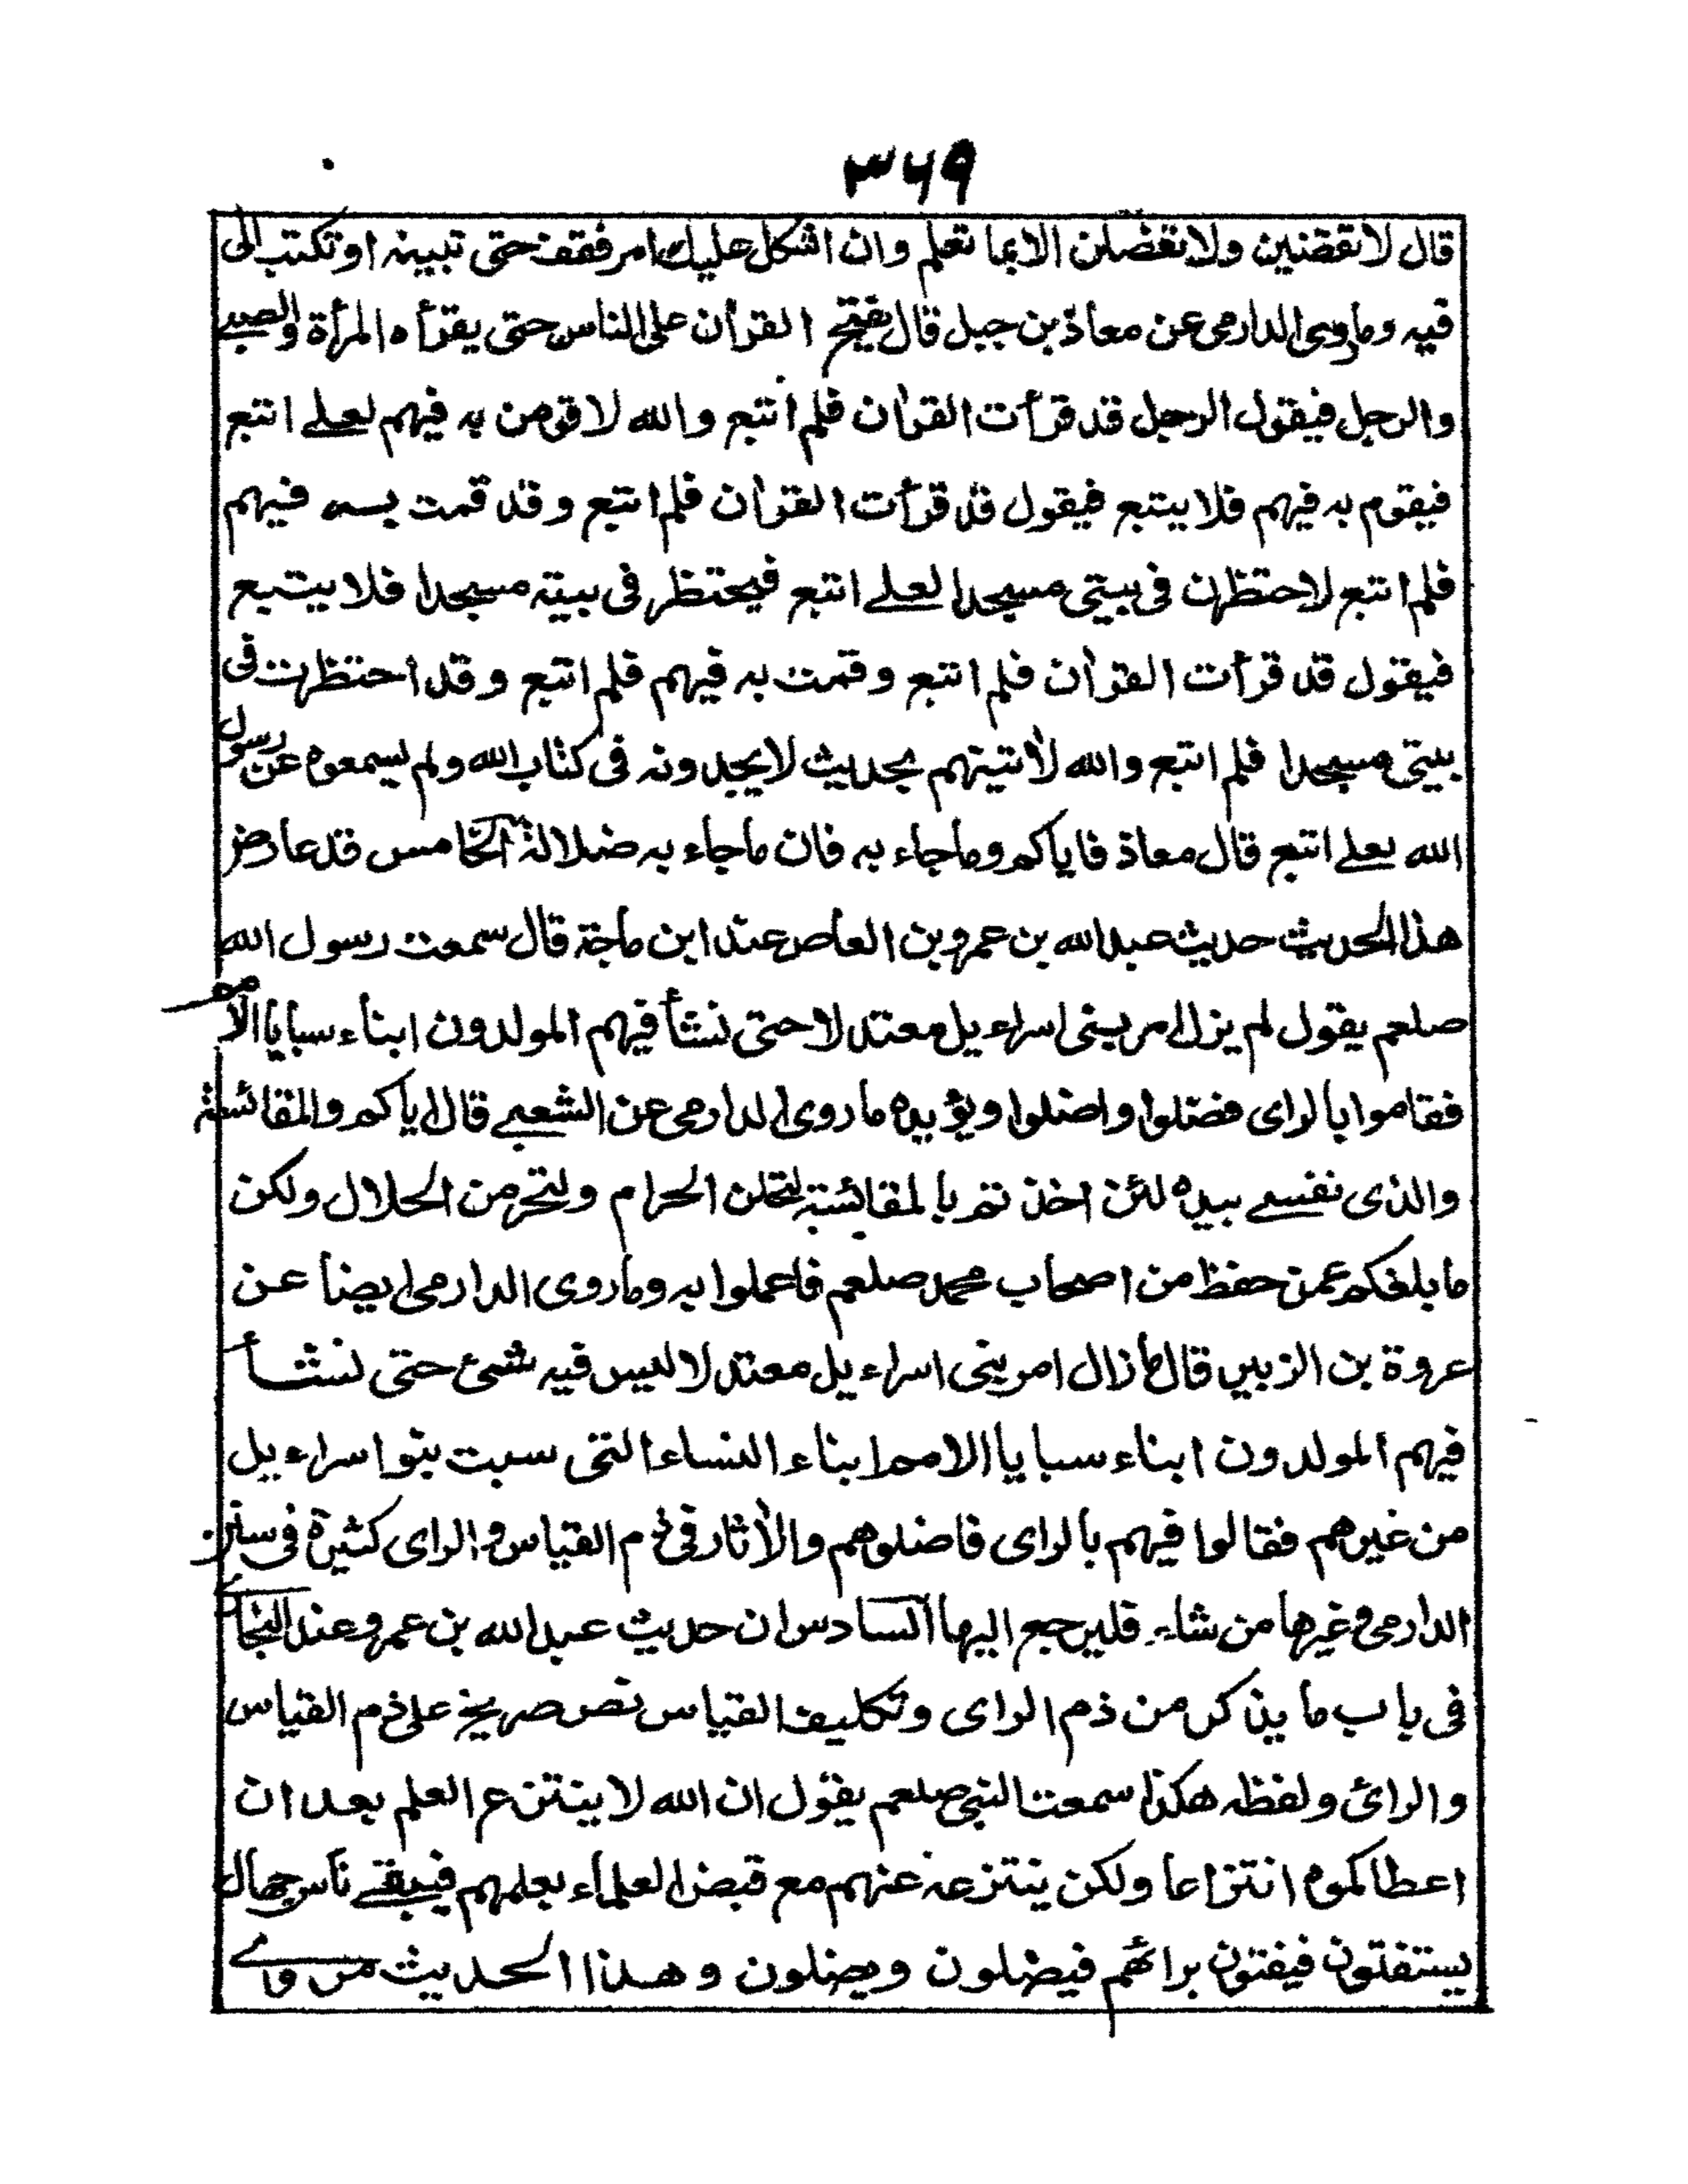 ٣٦٩
قال لا تقضنين ولا تفضلن الا بما تعلم وان اشكل عليك امر فقف حتى تبينه او تكتب الى
فيه وما روى الدارمى عن معاذ بن جبل قال يفتح القرأن على الناس حتى يقرأه المرأة والصبى
والرجل فيقول الرجل قد قرأت القرأن فلم اتبع والله لاقومن به فيهم لعلى اتبع
فيقوم به فيهم فلا يتبع فيقول قد قرأت القرأن فلم اتبع وقد قمت به فيهم
فلم اتبع لاحتظرن فى بيتى مسجدا لعلى اتبع فيحتظر فى بيته مسجدا فلا يتبع
فيقول قد قرأت القرأن فلم اتبع وقمت به فيهم فلم اتبع وقد احتظرت فى
بيتى مسجدا فلم اتبع والله لأتينهم بحديث لا يجدونه فى كتاب الله ولم يسمعوه عن رسول
الله لعلى اتبع قال معاذ فاياكم وما جاء به فان ما جاء به ضلالة الخامس قد عارض
هذا الحديث حديث عبد الله بن عمرو بن العاص عند ابن ماجة قال سمعت رسول الله
صلعم يقول لم يزل امر بنى اسراءيل معتدلا حتى نشأ فيهم المولدون ابناء سبايا الامم
فقاموا بالراى فضلوا واضلوا ويؤيده ما روى الدارمى عن الشعبى قال اياكم والمقائسة
والذى نفسى بيده لئن اخذتم بالمقائسة لتحلن الحرام ولتحرمن الحلال ولكن
ما بلغكم عمن حفظ من اصحاب محمد صلعم فاعملوا به وما روى الدارمى ايضا عن
عروة بن الزبير قال ما زال امر بنى اسراءيل معتدلا ليس فيه شىء حتى نشأ
فيهم المولدون ابناء سبايا الامم ابناء النساء التى سبت بنو اسراءيل
من غيرهم فقالوا فيهم بالراى فاضلوهم والأثار فى ذم القياس والراى كثيرة فى سنن
الدارمى وغيرها من شاء فليرجع اليها السادس ان حديث عبد الله بن عمرو عند البخارى
فى باب ما يذكر من ذم الراى وتكليف القياس نص صريح على ذم القياس
والرائ ولفظه هكذا سمعت النبى صلعم يقول ان الله لا ينتزع العلم بعد ان
اعطاكموه انتزاعا ولكن ينتزعه عنهم مع قبض العلماء بعلمهم فيبقى ناس جهال
يستفتون فيفتون برائهم فيضلون ويضلون وهذا الحديث مروى